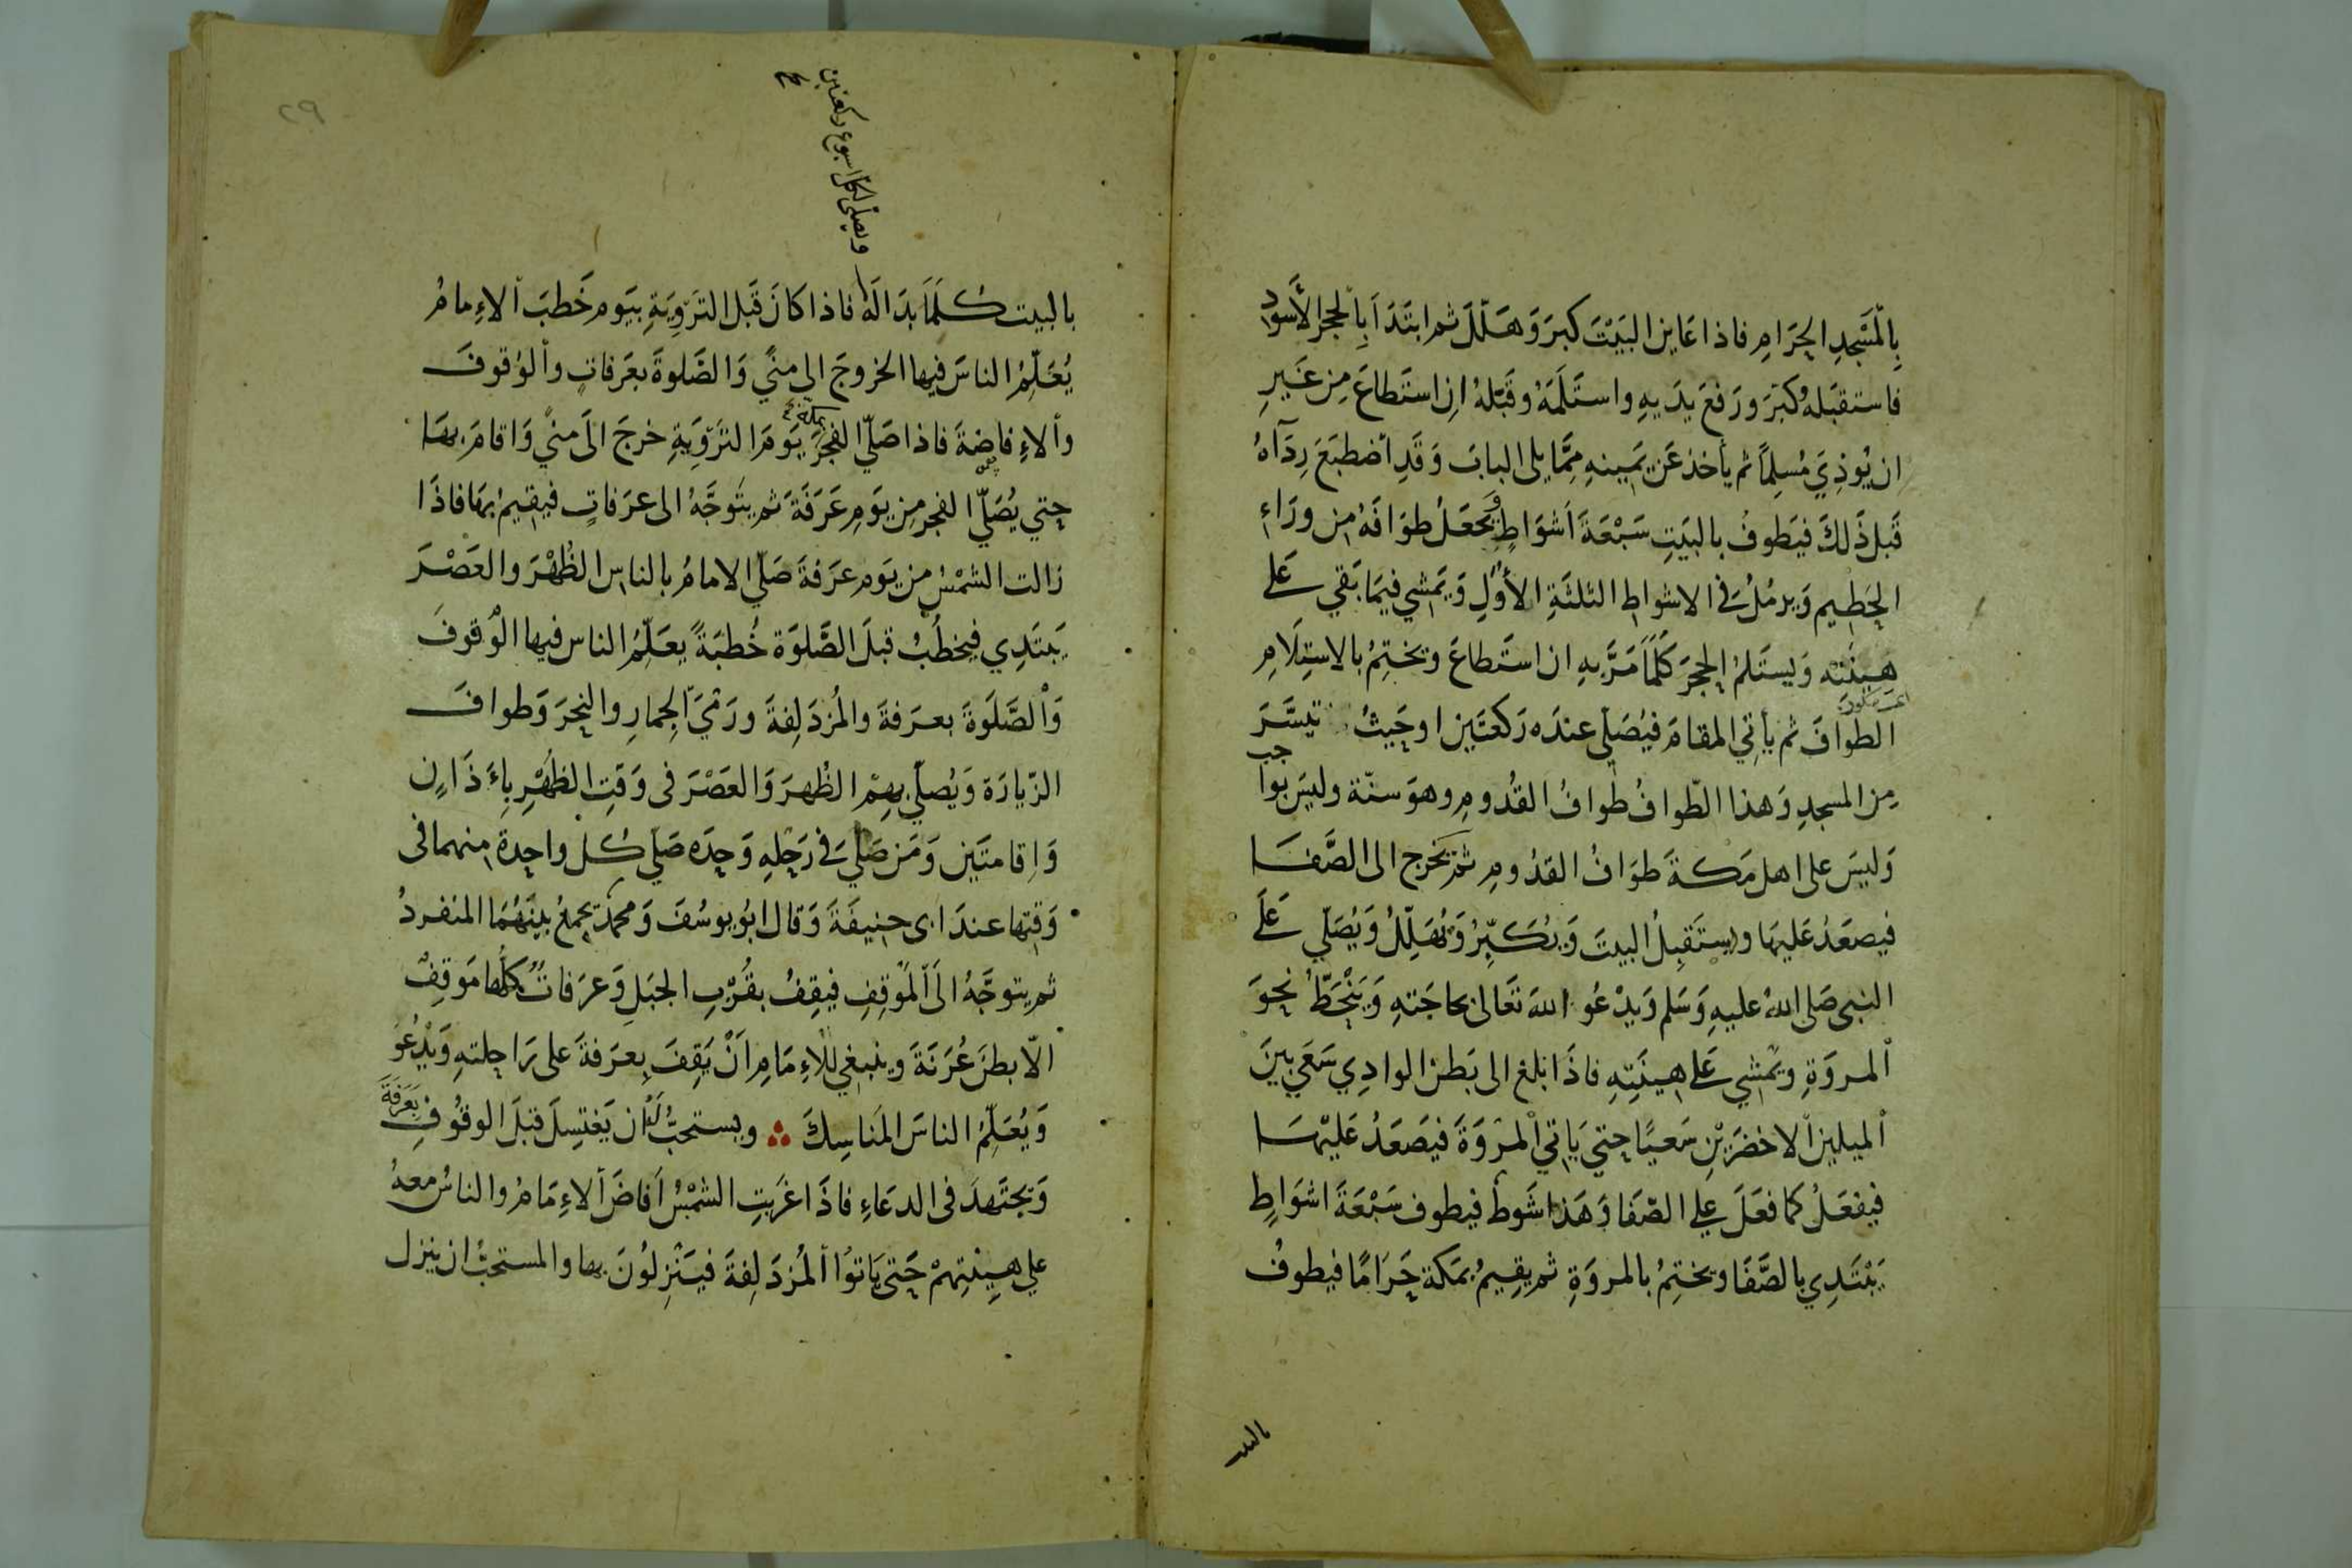 بِالْمَسْجِدِ الحَرَامِ فاذا عَايَن البَيْتَ كبرَ وَهَلّلَ ثم ابتَدَأَ بِالحجر الأسود
فاستقبَلهُ كبّرَ ورَفعَ يدَيهِ واستَلَمَهُ وقَبّلهُ ان استَطاعَ مِن غَيرِ
ان يُوذِيَ مُسِلماً ثم يأخذ عَن يَمينهِ مِمَّا يلى البابَ وَقَدِ أضطبَعَ رِدَآهُ
قَبلَ ذَلكَ فيَطوفُ بالبَيَتِ سَبْعَةَ اَشوَاطٍ وَيجعَلُ طوَافَهُ مِن ورَاءِ
الحَطِيم وَيرمُلُ فى الاشواط الثلثَةِ الأوَّلِ وَيَمشي فيمَا بَقي عَلى
هينَتِه وَيستَلمُ الحجَرَ كلّمَا مَرَّ بهِ ان استَطاعَ ويختِمُ بالاستِلَامِ
الطوافَ ثم يأتي المقامَ فيُصَلّي عندَه رَكعتَين اوحَيثُ تيسَّرَ
مِن المسجدِ وَهذا الطّوافُ طوافُ القدُومِ وهوَ سنّة وليسَ بواجب
وَليسَ على اهل مَكةَ طوَافُ القدُومِ ثم يَخرج الى الصَّفَا
فيصعَدُ عَليهَا ويستَقبِلُ البيتَ وَيُكَبِّرُ وَيُهَلِّلُ وَيُصَلّي عَلَى
النبى صَلى اللهُ عليهِ وَسَلم وَيدْعُو اللهَ تَعَالى بحاجَتهِ وَيَنْحَطُّ نحوَ
ألمروَةِ ويَمْشي عَلى هينَتِهِ فاذَا بلغ الى بَطن الوادِي سَعَي بينَ
ألميلين ألاخضرَيْنِ سَعيًا حتي يَاتي ألمرْوَةَ فيَصعَدُ عَليْهَا
فيفعَلُ كما فعَلَ على الصّفَا وَهَذا شَوط فيطوف سَبْعَةَ اشوَاطٍ
يَبْتَدِي بالصَّفَا ويختِمُ بالمروَةِ ثم يقِيمُ بمَكة حَرَامًا فيطوفُ
بالبيت
٢٩
ويصلّى لكل اسبوع ركعتين
صح
بالبيت كلَّمَا بدَا لَهُ فاذا كانَ قَبل التروِيَةِ بيَوم خَطبَ ألاءِمامُ
يُعَلّمُ الناسَ فيها الخروجَ الى منًي وَالصَّلوةَ بعَرفاتٍ وألوُقوفَ
وألاءِفاضةَ فاذا صَلّي الفجرَ بمكة يَومَ التروِيَةِ خرجَ الَى منًي وَاقامَ بهَا
حتي يُصَلّي الفجر مِن يَومِ عَرَفَةَ ثم يتَوَجَّهُ الى عرَفاتٍ فيقيمُ بهَا فاذَا
زالت الشمْسُ من يَوم عرَفةَ صَلّي الامامُ بالناس الظُهْرَ والعَصْرَ
يَبتَدِي فيخطُبُ قبلَ الصَّلوَة خُطبَةً يعَلّمُ الناس فيها الوُقوفَ
وَألصَّلوَةَ بعرَفةَ والمُزدَلِفةَ ورَمْيَ الجِمارِ والنحرَ وَطوافَ
الزّيارَة وَيُصلّي بهِمْ الظُهرَ وَالعَصْرَ فى وَقتِ الظهْرِ بِأَذَانٍ
وَاِقامتَين وَمَن صَلّي فى رَحْلِهِ وَحدَه صَلّي كل واحدة منهما فى
وَقتِها عندَ ابى حنيفَةَ وَقال ابُو يوسُفَ وَمحمدٌ يجمعُ بينَهُمَا المنفردُ
ثم يتوجَّهُ الَى ألمَوقِفِ فيقِفُ بقُرْبِ الجبَلِ وَعرَفاتٌ كلُّها مَوقِفٌ
الّا بطنَ عُرَنَةَ وينبغي للاءِمَامِ اَنْ يَقِفَ بِعرَفةَ على رَاحلتهِ وَيْدعُوَ
وَيُعَلّمُ الناسَ المَناسِكَ ويستحبُّ لهُ ان يَغتسِلَ قبلَ الوقُوفِ بعَرَفَةَ
وَيجتَهدَ فى الدعَاءِ فاذَا غرَبتِ الشمْسُ اَفاضَ ألاءِمَامُ والناسُ معهُ
على هِينَتِهمْ حَتى يَاتوُا ألمُزدَلِفةَ فيَنْزِلُونَ بها والمستحبُّ ان ينزل